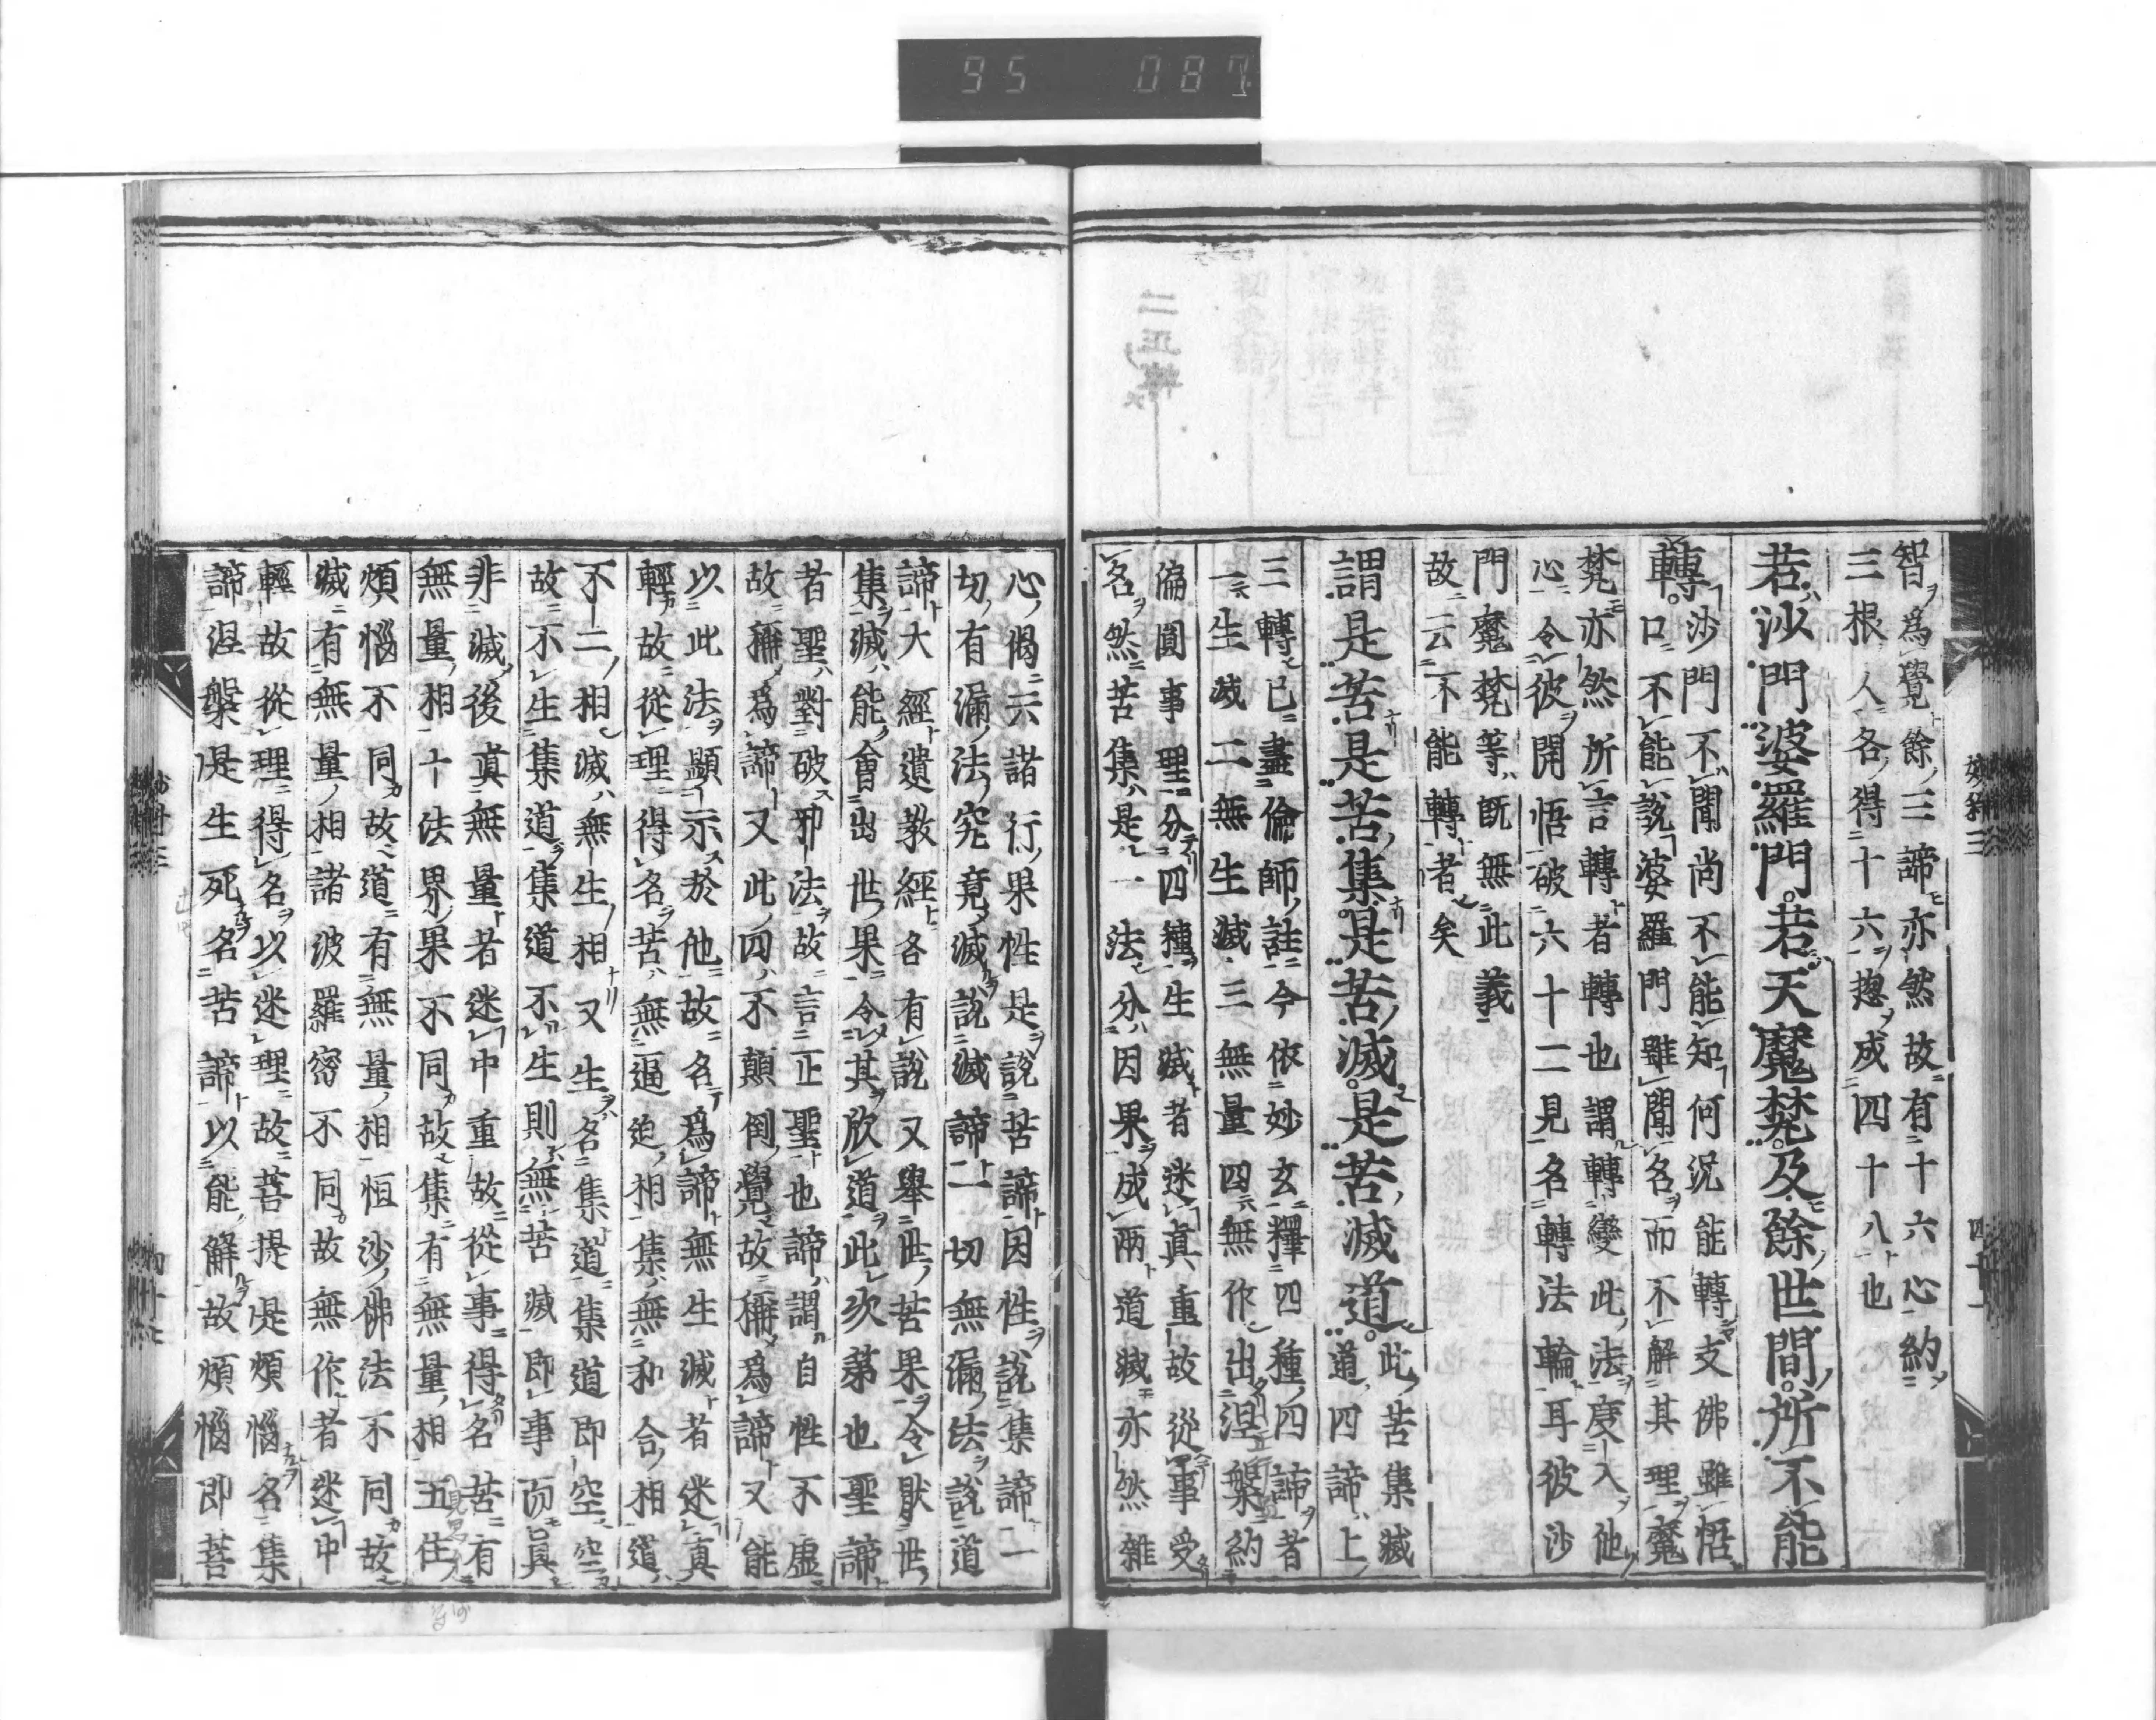 95 087
二正釋
智爲覺餘三諦亦然故有十六心約
三根人各得十六摠成四十八也
若沙門婆羅門若天魔梵及餘世間所不能
轉沙門不聞尚不能知何況能轉支佛雖悟
口不能說婆羅門雖聞名而不解其理魔
梵亦然所言轉者轉也謂轉變此法度入他
心令彼開悟破六十二見名轉法輪耳彼沙
門魔梵等既無此義
故云不能轉者矣
謂是苦是苦集是苦滅是苦滅道此苦集滅
道四諦上
三轉已盡倫師註今依妙玄釋四種四諦者
一生滅二無生滅三無量四無作出涅槃約
偏圓事理分四種生滅者迷真重故從事受
名然苦集是一法分因果成兩道滅亦然雜
心偈云諸行果性是說苦諦因性說集諦一
切有漏法究竟滅說滅諦一切無漏法說道
諦大經遺教經各有說又舉世苦果令厭世
集滅能會出世果令其欣道此次第也聖諦
者聖對破邪法故言正聖也諦謂自性不虛
故稱爲諦又此四不顛倒覺故稱爲諦又能
以此法顯示於他故名爲諦無生滅者迷真
輕故從理得名苦無逼迫相集無和合相道
不二相滅無生相又生名集道集道即空空
故不生集道集道不生則無苦滅即事而真
非滅後真無量者迷中重故從事得名苦有
無量相十法界果不同故集有無量相五住
煩惱不同故道有無量相恒沙佛法不同故
滅有無量相諸波羅蜜不同故無作者迷中
輕故從理得名以迷理故菩提是煩惱名集
諦涅槃是生死名苦諦以能解故煩惱即菩